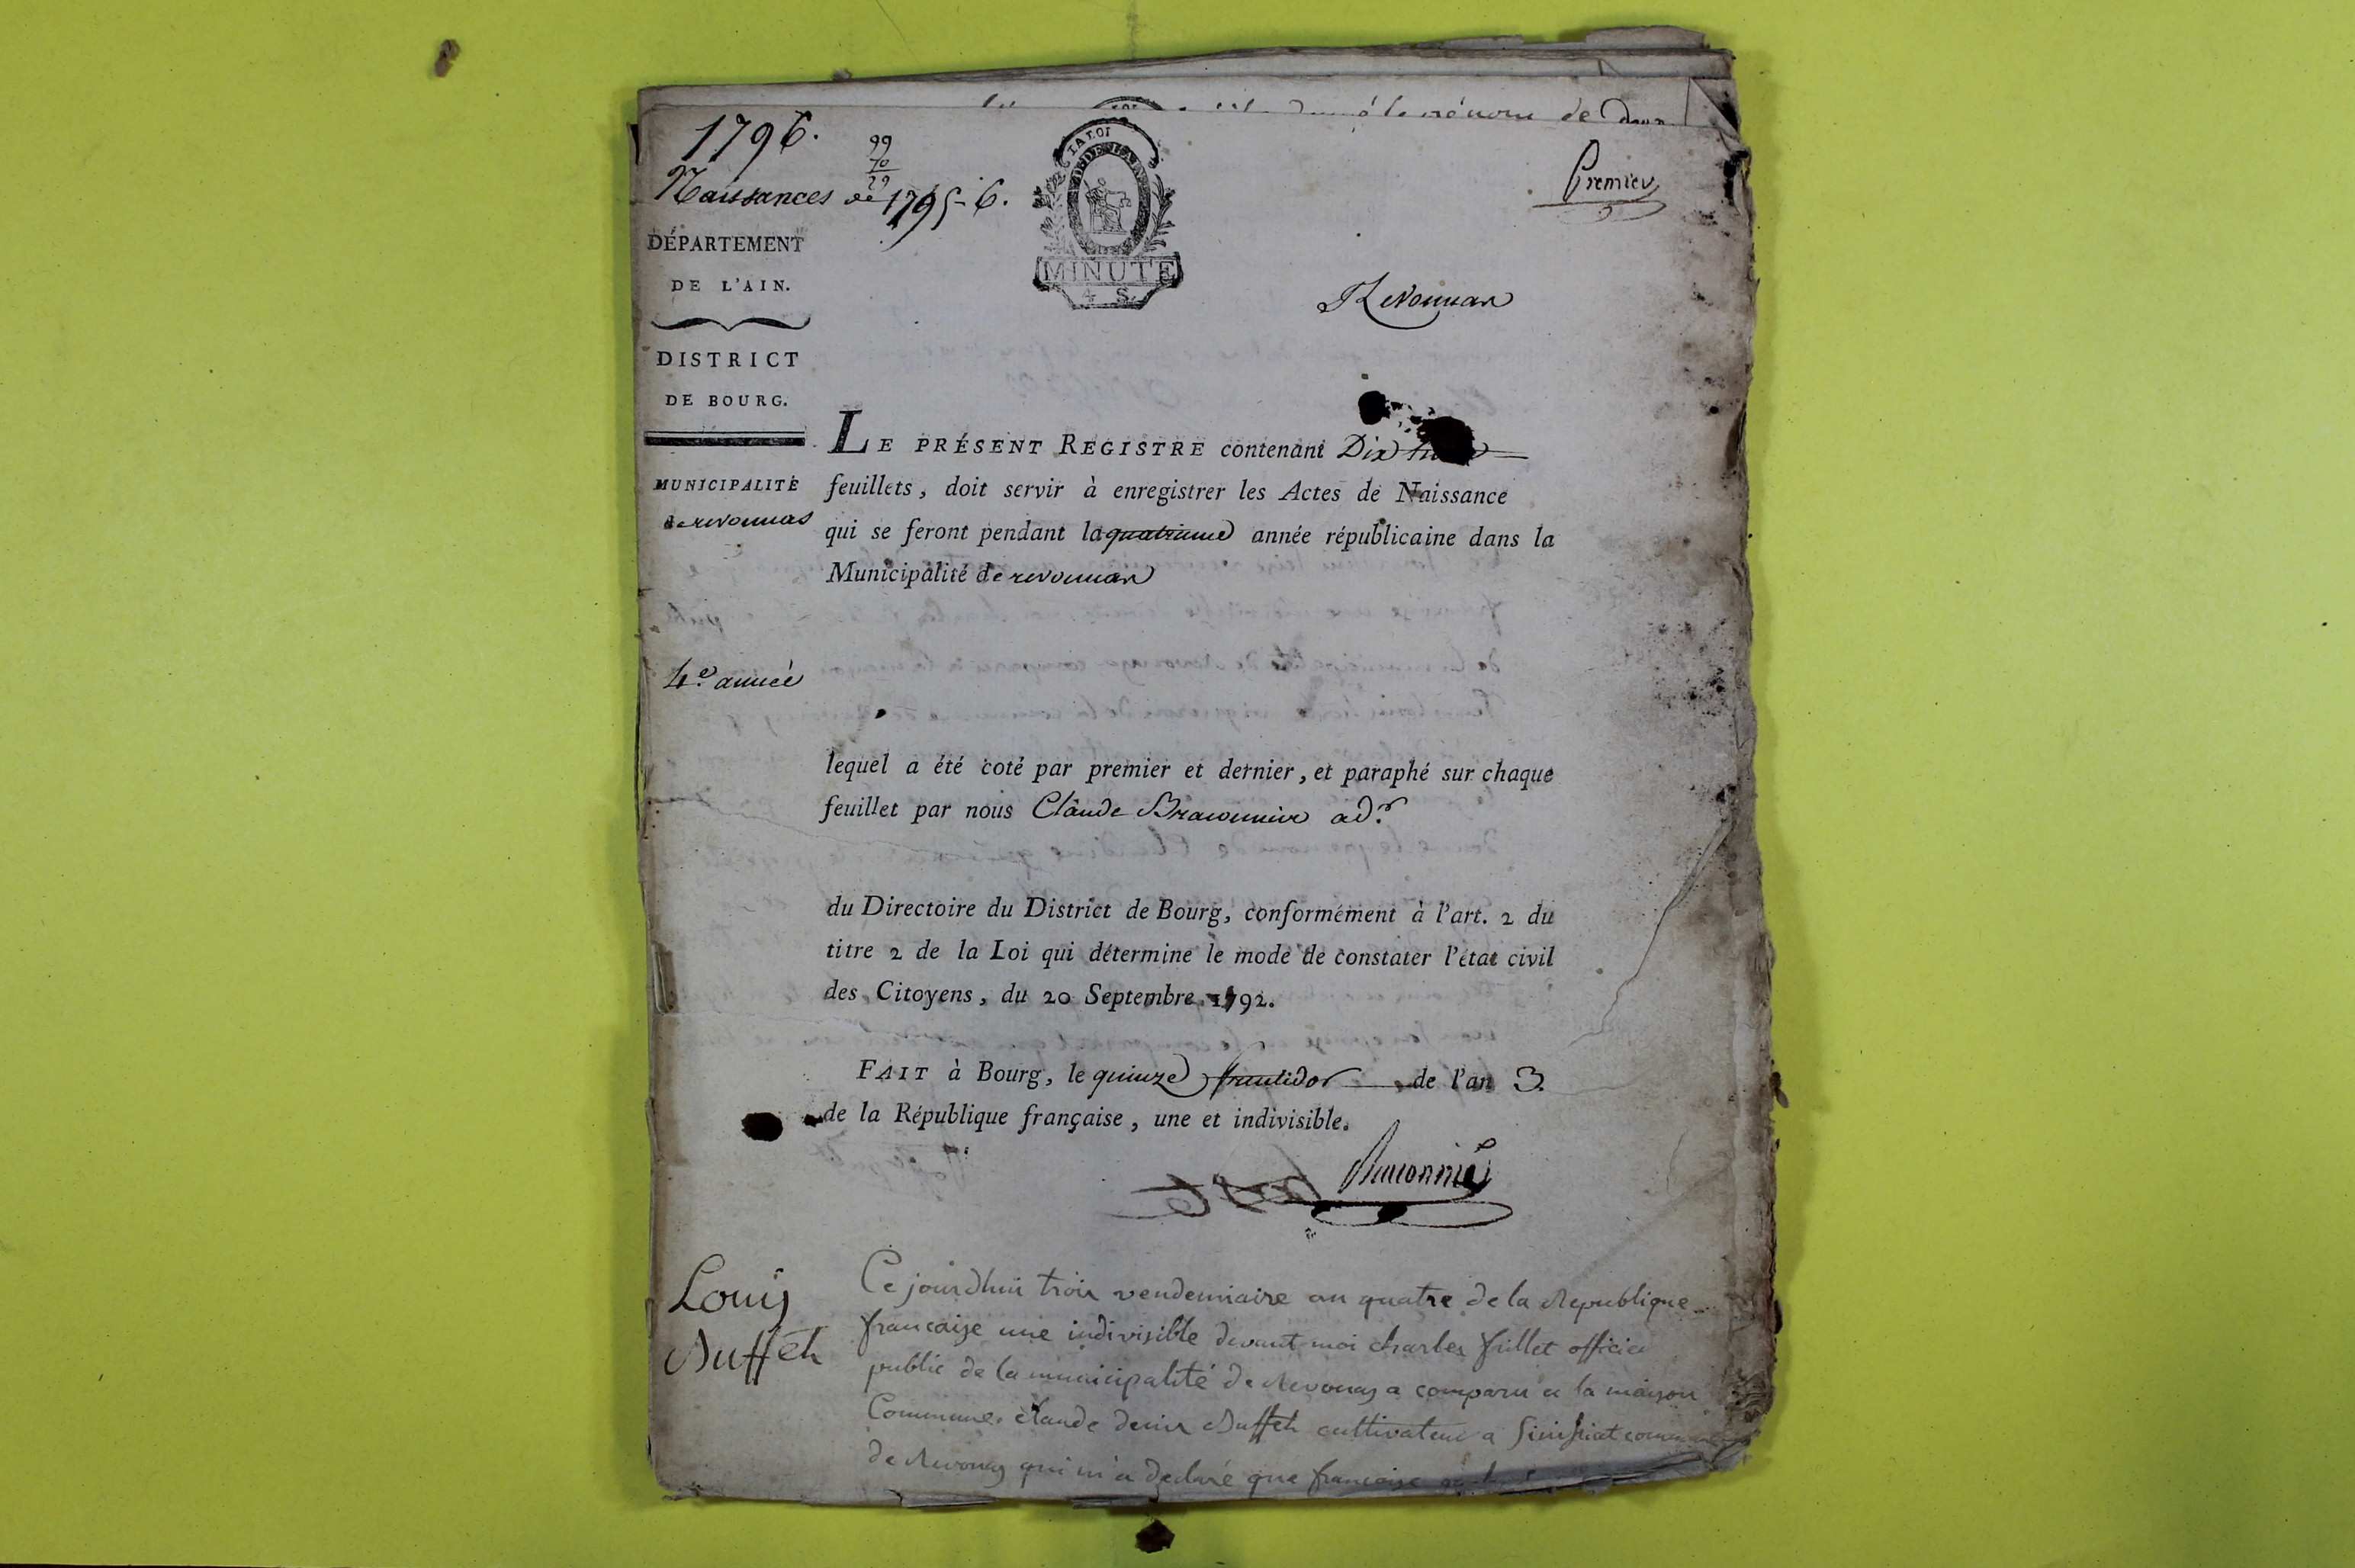 1796.
99
70
29
Naissances de 1795-6.
Premier
LA LOI
MINUTE
4 S.
DÉPARTEMENT
DE L'AIN.
Revonnas
DISTRICT
DE BOURG.
LE PRÉSENT REGISTRE contenant Dix
MUNICIPALITÉ
de revonnas
feuillets, doit servir à enregistrer les Actes de Naissance
qui se feront pendant la quatrieme année républicaine dans la
Municipalité de revonnas
4e année
lequel a été coté par premier et dernier, et paraphé sur chaque
feuillet par nous Claude Braconnier adr
du Directoire du District de Bourg, conformément à l'art. 2 du
titre 2 de la Loi qui détermine le mode de constater l'état civil
des Citoyens, du 20 Septembre 1792.
FAIT à Bourg, le quinze fructidor de l'an 3
de la République française, une et indivisible.
Braconnier
Louis
Buffet
Ce jourdhui trois vendemiaire an quatre de la Republique
francaise une indivisible devant moi charles frillet officier
public de la municipalité de Revonas a comparu a la maison
Commune claude denis Buffet cultivateur a
de Revonas qui m'a declaré que francoise